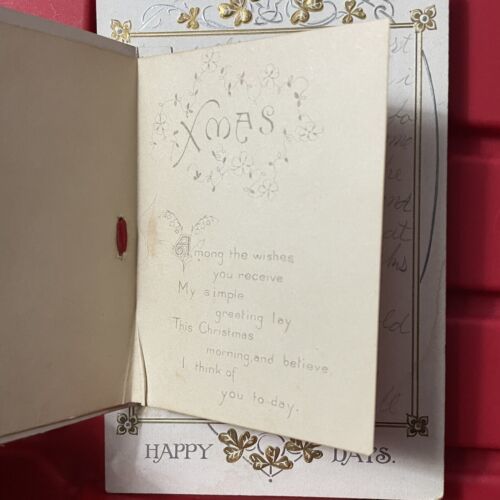 Xmas
Among the wishes
you receive
My simple
greeting lay
This Christmas
morning, and believe,
I think of
you to-day.
HAPPY DAYS.